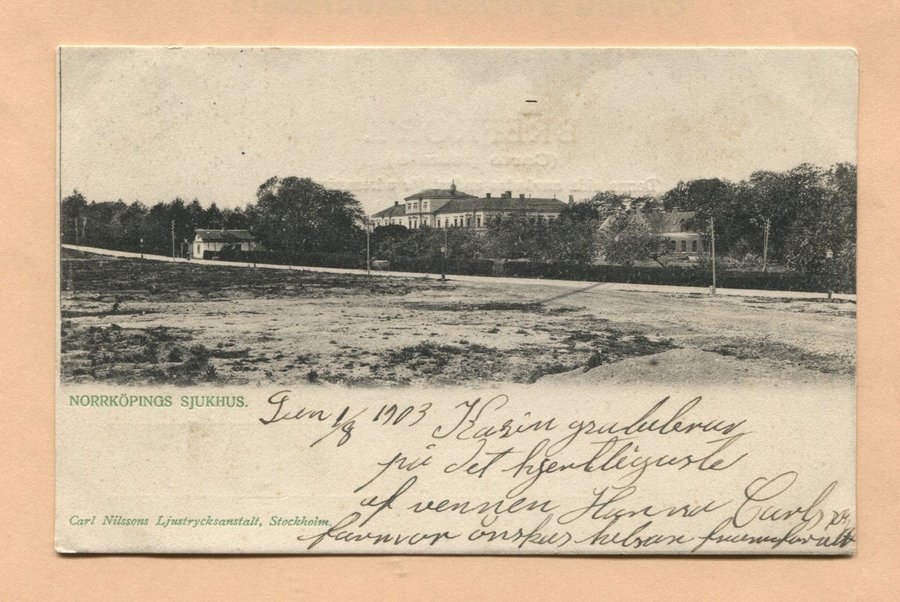 NORRKÖPINGS SJUKHUS.
Den 1/8 1903 Karin gratuleras
på det hjertligaste
af vennen
Carl Nilssons Ljustrycksanstalt, Stockholm.
farmor önskas helsan framförallt